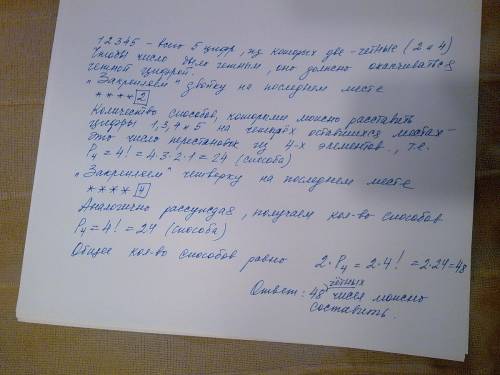 12345 – всего 5 цифр, из которых две – четные (2 и 4)
Чтобы число было четным, оно должно оканчиваться
четной цифрой.
"Закрепляем" двойку на последнем месте
* * * * 2
Количество способов, которыми можно расставить
цифры 1, 3, 4 и 5 на четырёх оставшихся местах –
это число перестановок из 4-х элементов., т.е.
P4 = 4! = 4·3·2·1 = 24 (способа)
"Закрепляем" четверку на последнем месте
* * * * 4
Аналогично рассуждая, получаем кол-во способов
P4 = 4! = 24 (способа)
Общее кол-во способов равно 2·P4 = 2·4! = 2·24 = 48
Ответ: 48 чётных чисел можно
составить.